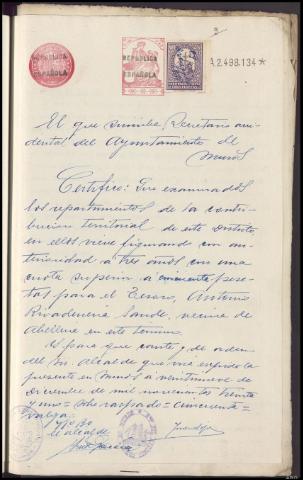 REPUBLICA
ESPAÑOLA
REPUBLICA
ESPAÑOLA
A.2.498.134*
El que suscribe, Secretario acci-
dental del Ayuntamiento de
Muros
Certifico: Que examinados
los repartimientos de la contri-
bucion territorial de este Distrito,
en ellos viene figurando con an-
terioridad a tres años con una
cuota superior a cincuenta pese-
tas para el Tesoro, Antonio
Rivadeneira Lande, vecino de
Abelleira en este termino.
Y para que conste y de orden
del Sr. Alcalde que visa expido la
presente en Muros a veintinueve de
Diciembre de mil novecientos treinta
y uno = sobre raspado = cincuenta =
valga =
Vº Bº
El alcalde